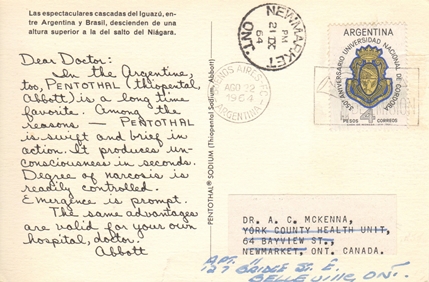 Las espectaculares cascadas del Iguazú, en-
tre Argentina y Brasil, descienden de una
altura superior a la del salto del Niágara.
Dear Doctor:
In the Argentine,
too, PENTOTHAL (thiopental
Abbott) is a long time
favorite. Among the
reasons — PENTOTHAL
is swift and brief in
action. It produces un-
consciousness in seconds.
Degree of narcosis is
readily controlled.
Emergence is prompt.
The same advantages
are valid for your own
hospital, doctor.
Abbott
PENTOTHAL® SODIUM (Thiopental Sodium, Abbott)
NEWMARKET
PM
21 IX
64
ONT.
BUENOS AIRES
AGO 12
1964
ARGENTINA
ARGENTINA
350º ANIVERSARIO UNIVERSIDAD NACIONAL DE CORDOBA
4
PESOS CORREOS
DR. A. C. MCKENNA,
YORK COUNTY HEALTH UNIT,
64 BAYVIEW ST.,
NEWMARKET, ONT. CANADA.
APT. 11
127 BRIDGE ST. E.
BELLEVILLE, ONT.